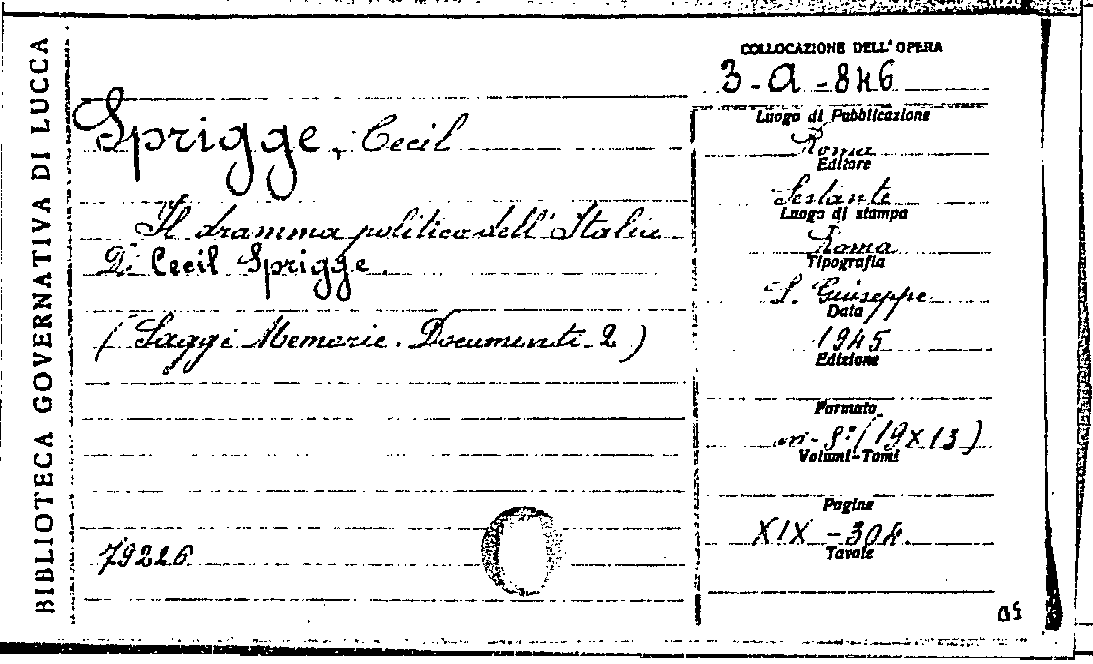 BIBLIOTECA GOVERNATIVA DI LUCCA
COLLOCAZIONE DELL'OPERA
3-a-846
Sprigge, Cecil
Il dramma politico dell'Italia
Di Cecil Sprigge.
(Saggi Memorie. Documenti. 2)
79226
Luogo di Pubblicazione
Roma
Editore
Sestante
Luogo di stampa
Roma
Tipografia
S. Giuseppe
Data
1945
Edizione
Formato
in-8°(19x13)
Volumi-Tomi
Pagine
XIX-304.
Tavole